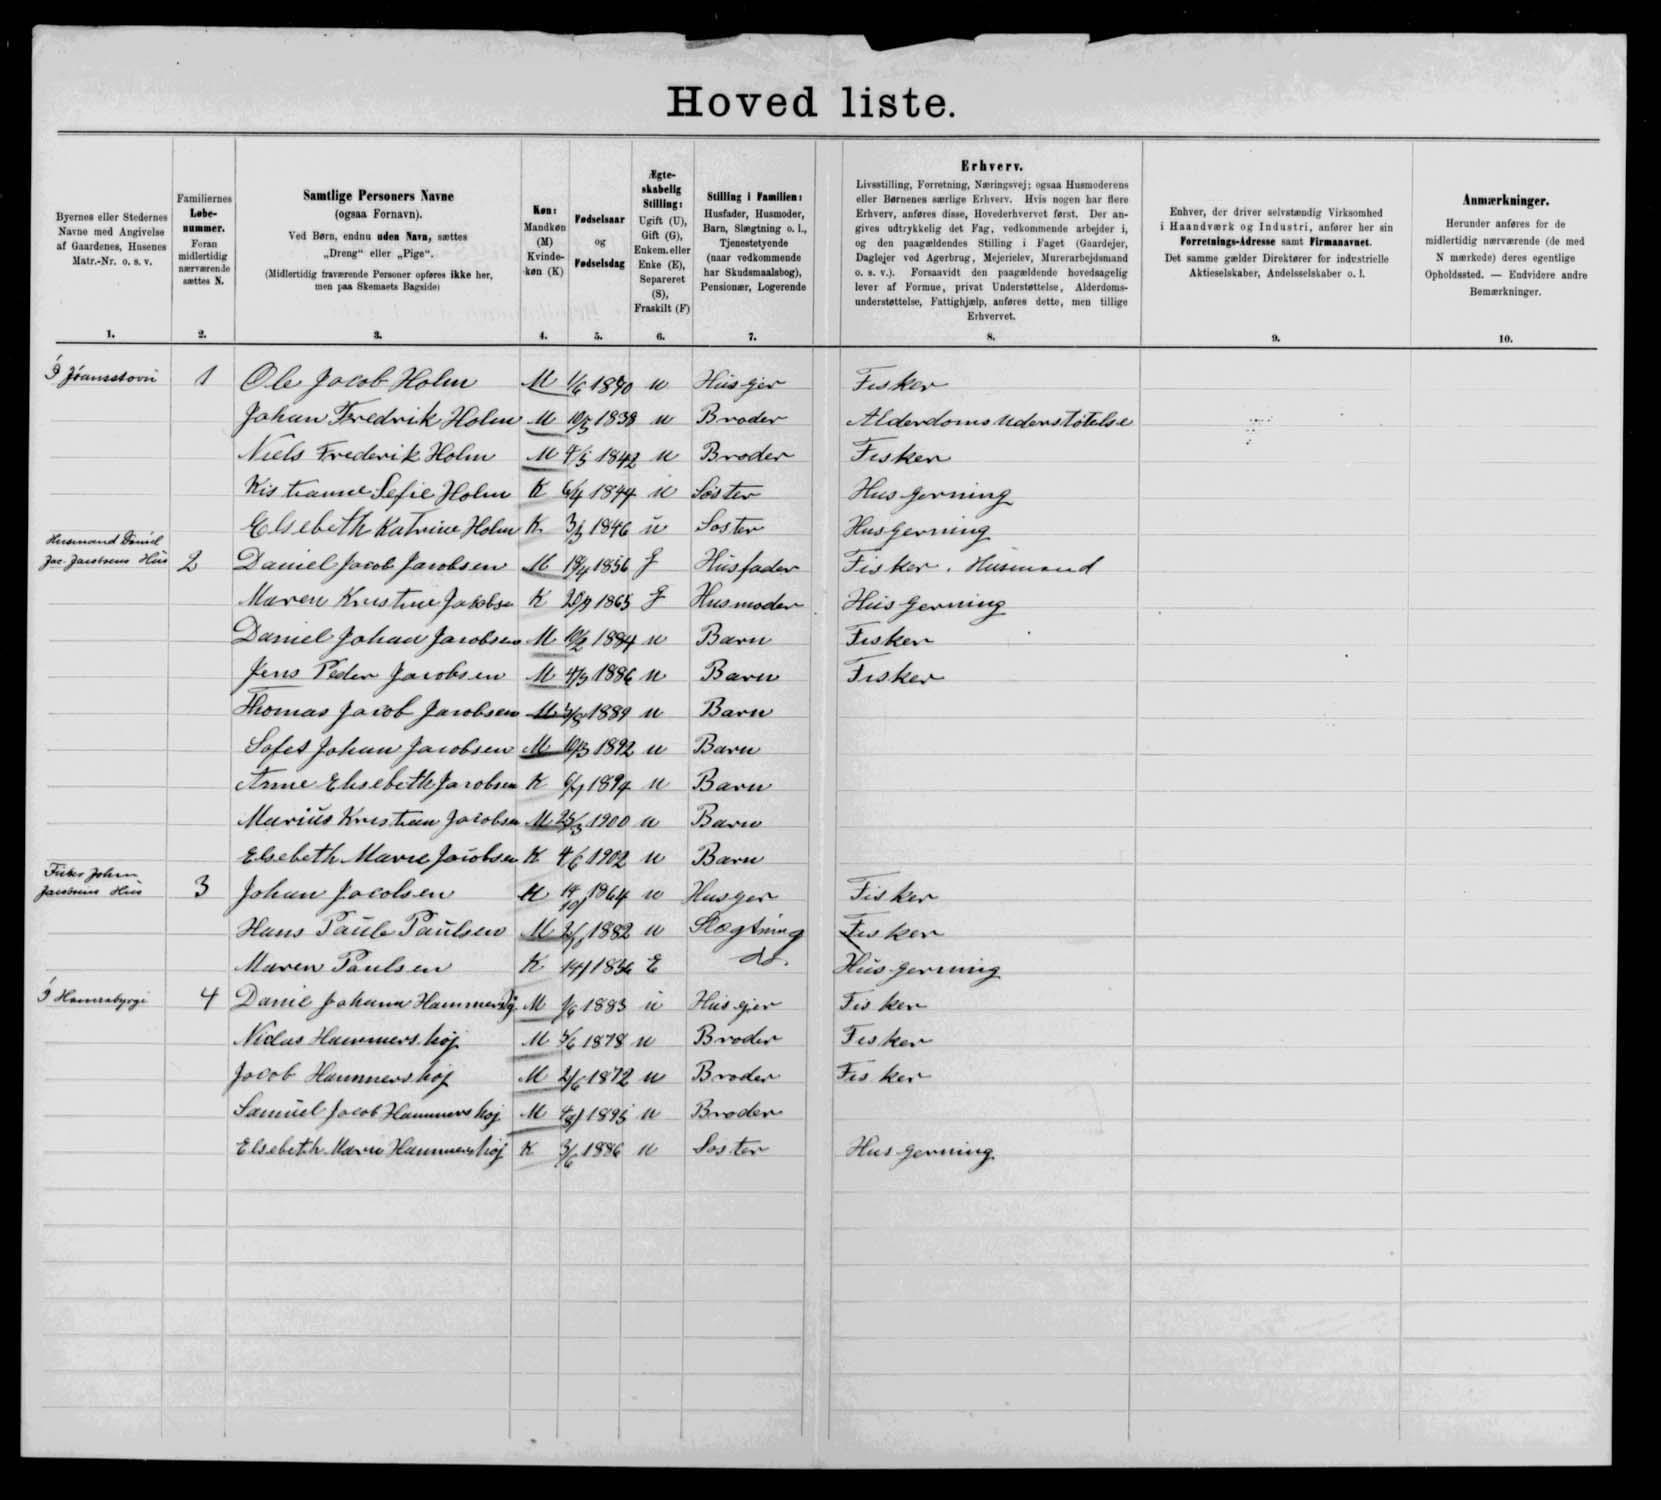 Hoved liste.
Byernes eller Stedernes Navne med Angivelse af Gaardenes, Husenes Matr.-Nr. o. s. v.
Familiernes Løbe-nummer. Foran midlertidig nærværende sættes N.
Samtlige Personers Navne
(ogsaa Fornavn).
Ved Børn, endnu uden Navn, sættes
„Dreng“ eller „Pige“.
(Midlertidig fraværende Personer opføres ikke her,
men paa Skemaets Bagside)
Køn:
Mandkøn
(M)
Kvinde-
køn (K)
Fødselsaar
og
Fødselsdag
Ægte-
skabelig
Stilling:
Ugift (U),
Gift (G),
Enkem. eller
Enke (E),
Separeret
(S),
Fraskilt (F)
Stilling i Familien:
Husfader, Husmoder,
Barn, Slægtning o. l.,
Tjenestetyende
(naar vedkommende
har Skudsmaalsbog),
Pensionær, Logerende
Erhverv.
Livsstilling, Forretning, Næringsvej; ogsaa Husmoderens
eller Børnenes særlige Erhverv. Hvis nogen har flere
Erhverv, anføres disse, Hovederhvervet først. Der an-
gives udtrykkelig det Fag, vedkommende arbejder i,
og den paagældendes Stilling i Faget (Gaardejer,
Daglejer ved Agerbrug, Mejerielev, Murerarbejdsmand
o. s. v.). Forsaavidt den paagældende hovedsagelig
lever af Formue, privat Understøttelse, Alderdoms-
understøttelse, Fattighjælp, anføres dette, men tillige
Erhvervet.
Enhver, der driver selvstændig Virksomhed
i Haandværk og Industri, anfører her sin
Forretnings-Adresse samt Firmanavnet.
Det samme gælder Direktører for industrielle
Aktieselskaber, Andelsselskaber o. l.
Anmærkninger.
Herunder anføres for de
midlertidig nærværende (de med
N mærkede) deres egentlige
Opholdssted. — Endvidere andre
Bemærkninger.
1. 2. 3. 4. 5. 6. 7. 8. 9. 10.
Í Jóansstovu 1 Ole Jacob Holm M 1/6 1840 u Husejer Fisker
Johan Fredrik Holm M 10/5 1838 u Broder Alderdomsuderstøtelse
Niels Frederik Holm M 1842 u Broder Fisker
Kistianne Sefie Holm K 6/4 1844 u Søster Husgerning
Elsebeth Katrine Holm K 1846 u Søster Husgerning
Husmand Daniel
Jac. Jacobsens Hus 2 Daniel Jacob Jacobsen M 1856 G Husfader Fisker. Husmand
Maren Kristine Jakobse K 1865 G Husmoder Husgerning
Daniel Johan Jacobsen M 10/2 1884 u Barn Fisker
Jens Peder Jacobsen M 1886 u Barn Fisker
Thomas Jacob Jacobsen M 1889 u Barn
Sofus Johan Jacobsen M 10/3 1892 u Barn
Anne Elsebeth Jacobsen K 1894 u Barn
Marius Kristian Jacobsen M 25/3 1900 u Barn
Elsebeth Marie Jacobsen K 4/6 1902 u Barn
Fisker Johan
Jacobsens Hus 3 Johan Jacobsen M 14/10 1864 u Husejer Fisker
Hans Paule Paulsen M 1882 u Slægtning Fisker
Maren Paulsen K 1836 E do. Husgerning
Í Hamrabyrgi 4 Daniel Johann Hammershøj M 1883 u Husejer Fisker
Niclas Hammershøj M 5/6 1878 u Broder Fisker
Jacob Hammershøj M 2/6 1872 u Broder Fisker
Samuel Jacob Hammershøj M 1895 u Broder
Elsebeth Marie Hammershøj K 3/6 1886 u Søster Husgerning